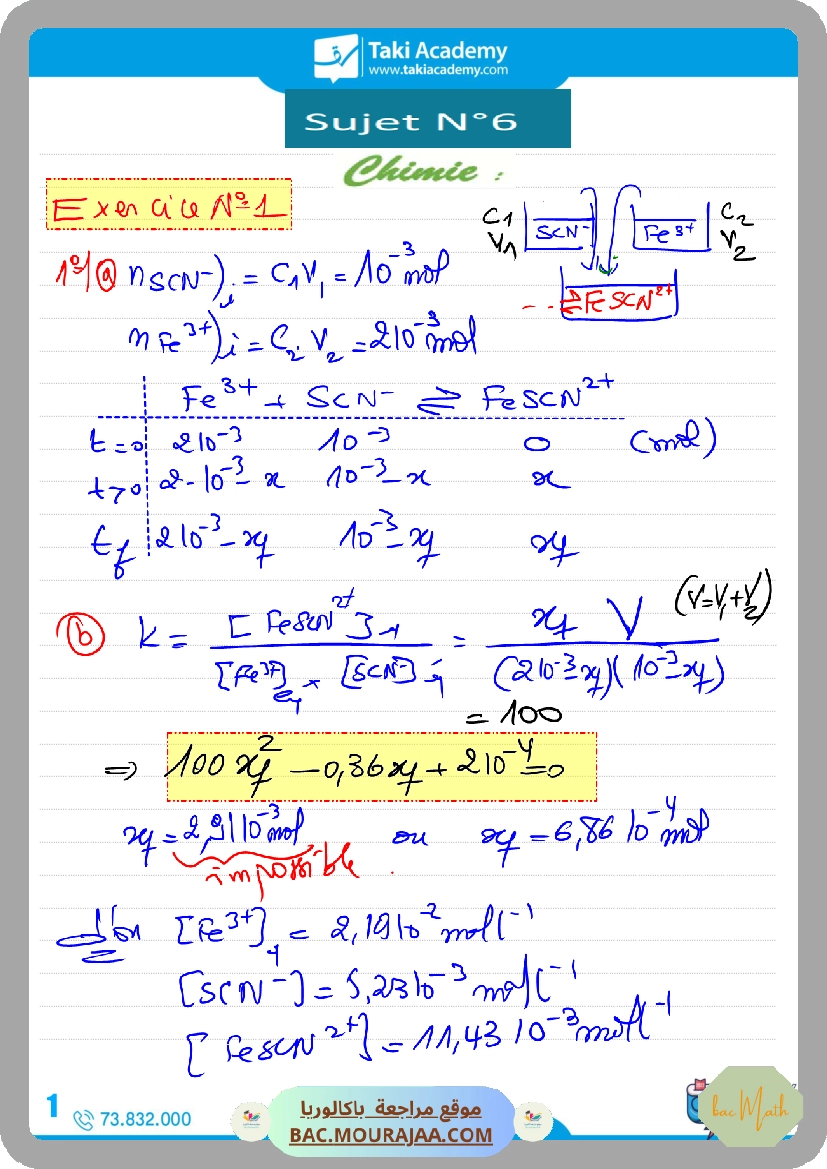 Taki Academy
www.takiacademy.com
Sujet N°6
Chimie :
Exercice N°1
C1 V1 SCN- Fe3+ C2 V2
... ⇌ FeSCN2+
1°/ a) nSCN-)i = C1V1 = 10^-3 mol
nFe3+)i = C2 V2 = 2 10^-3 mol
Fe3+ + SCN- ⇌ FeSCN2+
t=0 2 10^-3 10^-3 0 (mol)
t>0 2. 10^-3 - x 10^-3 - x x
tf 2 10^-3 - xf 10^-3 - xf xf
b) K = [FeSCN2+]éq / [Fe3+]éq × [SCN-]éq = xf V / (2 10^-3 - xf)(10^-3 - xf) (V=V1+V2)
= 100
⇒ 100 xf^2 - 0,36 xf + 2 10^-4 = 0
xf = 2,91 10^-3 mol ou xf = 6,86 10^-4 mol
impossible
[Fe3+]éq = 2,19 10^-2 mol l^-1
[SCN-] = 5,23 10^-3 mol l^-1
[FeSCN2+] = 11,43 10^-3 mol l^-1
1
73.832.000
موقع مراجعة باكالوريا
BAC.MOURAJAA.COM
bac Math